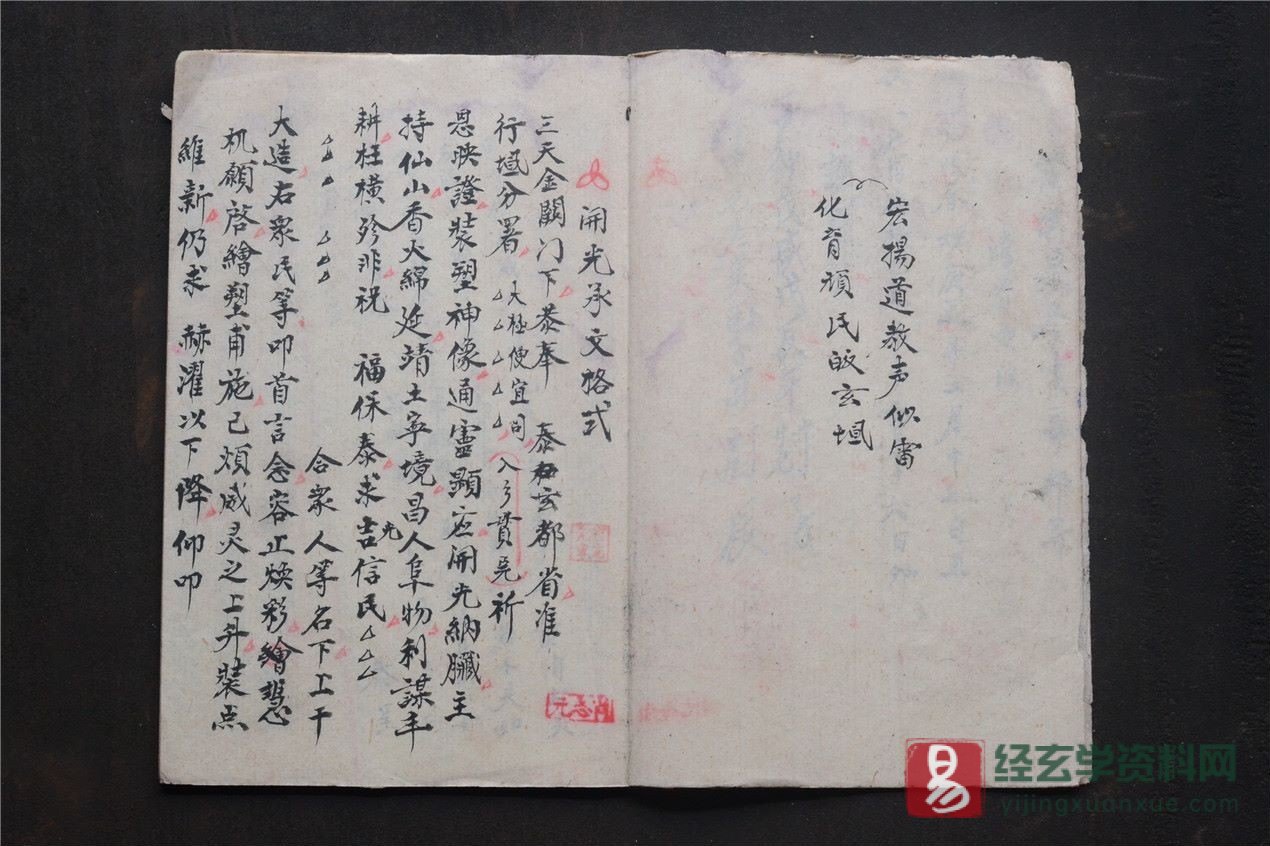 宏揚道教声似雷
化育頑民皈玄
開光承文格式
三天金闕门下恭奉　泰玄都省准
行壇分署　大極便宜司　入彡貲完祈
恩映證裝塑神像通靈顯应開光納臟主
持仙山香火綿延靖土寧境昌人阜物利謀丰
耕枉橫殄非祝　福保泰求吉光信民厶厶
厶厶　厶厶
合衆人等名下上干
大造右衆民等叩首言念容止焕彩繪
机願啓繪塑甫施已煩威灵之上升裝点
維新仍求　赫濯以下降仰叩
肖志元
易
经玄学资料网
yijingxuanxue.com